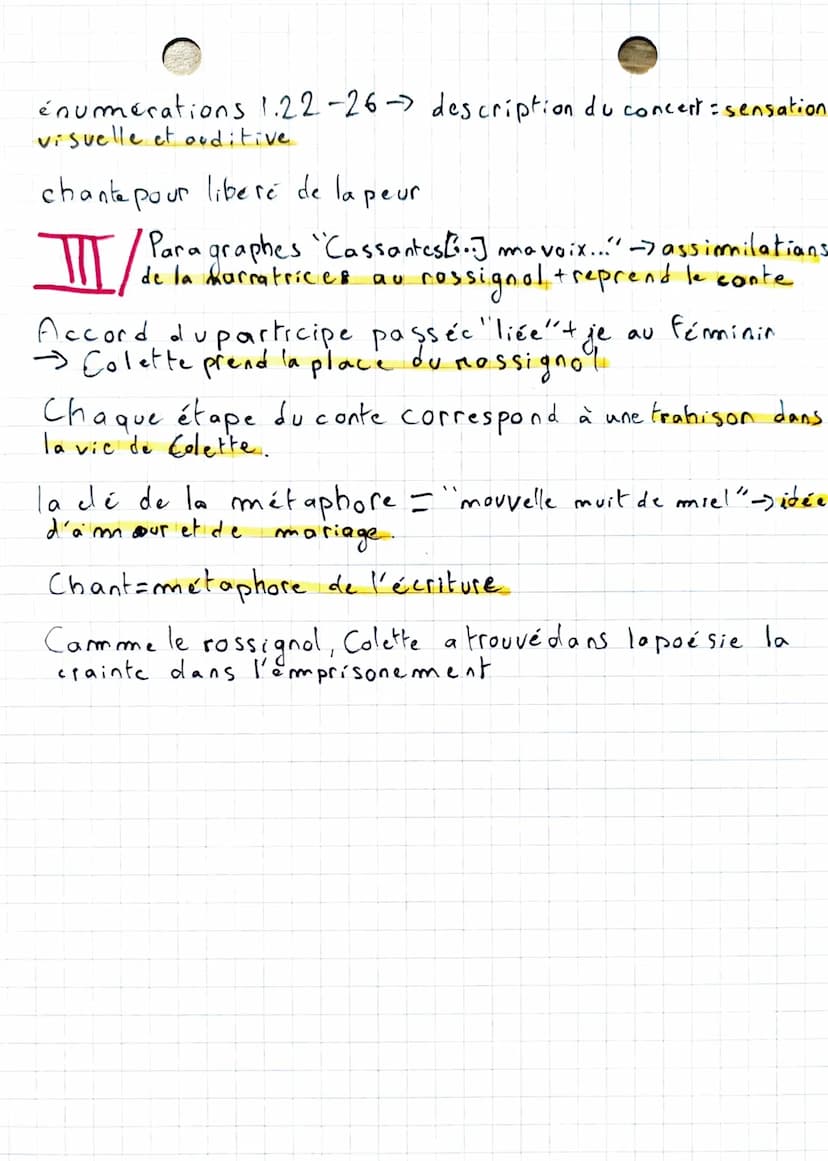 énumérations l.22-26 → description du concert = sensation
visuelle et auditive
chante pour libéré de la peur
III/ Paragraphes "Cassantes[...] ma voix..." → assimilations
de la narratrices au rossignol + reprend le conte
Accord du participe passée "liée" + je au féminin
→ Colette prend la place du rossignol
Chaque étape du conte correspond à une trahison dans
la vie de Colette.
la clé de la métaphore = "nouvelle nuit de miel" → idée
d'amour et de mariage.
Chant = métaphore de l'écriture
Comme le rossignol, Colette a trouvé dans la poésie la
crainte dans l'emprisonement